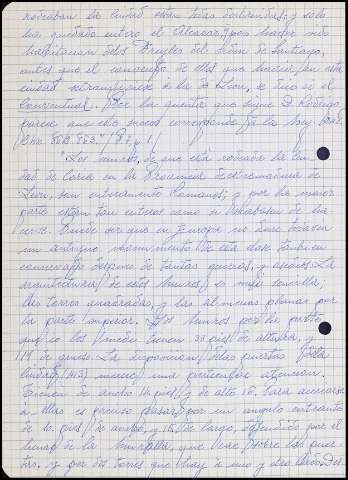 rodeaban la ciudad estan todas destruidas, y solo
ha quedado entero el Alcazar, por haber sido
habitacion de los Freyles del Señor de Santiago,
antes que el convento de ellos que hacia en esta
ciudad se transfiriese a la de Leon, se dice es el
Conventual. Por la cuenta que sigue D. Rodrigo,
parece que este suceso corresponde a la
"Los muros, de que está rodeada la Ciu-
dad de Coria en la Provincia de Extremadura de
Leon, son enteramente Romanos; y por la mayor
parte estan tan enteros como si acabasen de ha-
cerse. Puede ser que en Europa no haya
un antiguo monumento de esta clase tan bien
conservado despues de tantas guerras, y asedios. La
arquitectura de estos muros, es muy sencilla;
las torres quadradas, y las almenas planas por
la parte superior. Los muros por la parte
que yo los medi tienen 30 pies de altura, y
14 de grueso. La disposicion de las puertas de la
ciudad merece una particular atencion.
Tienen de ancho 14 pies y de alto 16. Para acercarse
a ellas es preciso pasar por un angulo entrante
de 10 pies de ancho, y 15 de largo, defendido por el
lienzo de la muralla, que cae sobre las puer-
tas, y por dos torres que hay a uno y otro lado. Des-